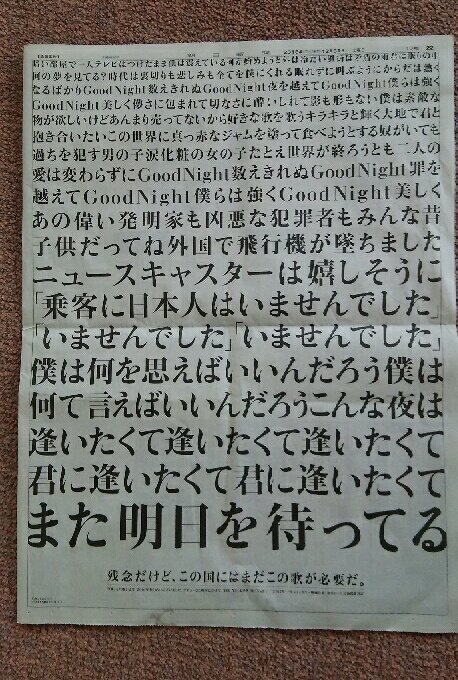 暗い部屋で一人テレビはつけたまま僕は震えている何か始めようと
何の夢を見てる?時代は裏切りも悲しみも全てを僕にくれる眠れずに叫ぶようにからだは熱く
なるばかりGoodNight数えきれぬGoodNight夜を越えてGoodNight僕らは強く
GoodNight美しく儚さに包まれて切なさに酔いしれて影も形もない僕は素敵な
物が欲しいけどあんまり売ってないから好きな歌を歌うキラキラと輝く大地で君と
抱き合いたいこの世界に真っ赤なジャムを塗って食べようとする奴がいても
過ちを犯す男の子涙化粧の女の子たとえ世界が終ろうとも二人の
愛は変わらずにGoodNight数えきれぬGoodNight罪を
越えてGoodNight僕らは強くGoodNight美しく
あの偉い発明家も凶悪な犯罪者もみんな昔
子供だってね外国で飛行機が墜ちました
ニュースキャスターは嬉しそうに
「乗客に日本人はいませんでした」
「いませんでした」「いませんでした」
僕は何を思えばいいんだろう僕は
何て言えばいいんだろうこんな夜は
逢いたくて逢いたくて逢いたくて
君に逢いたくて君に逢いたくて
また明日を待ってる
残念だけど、この国にはまだこの歌が必要だ。